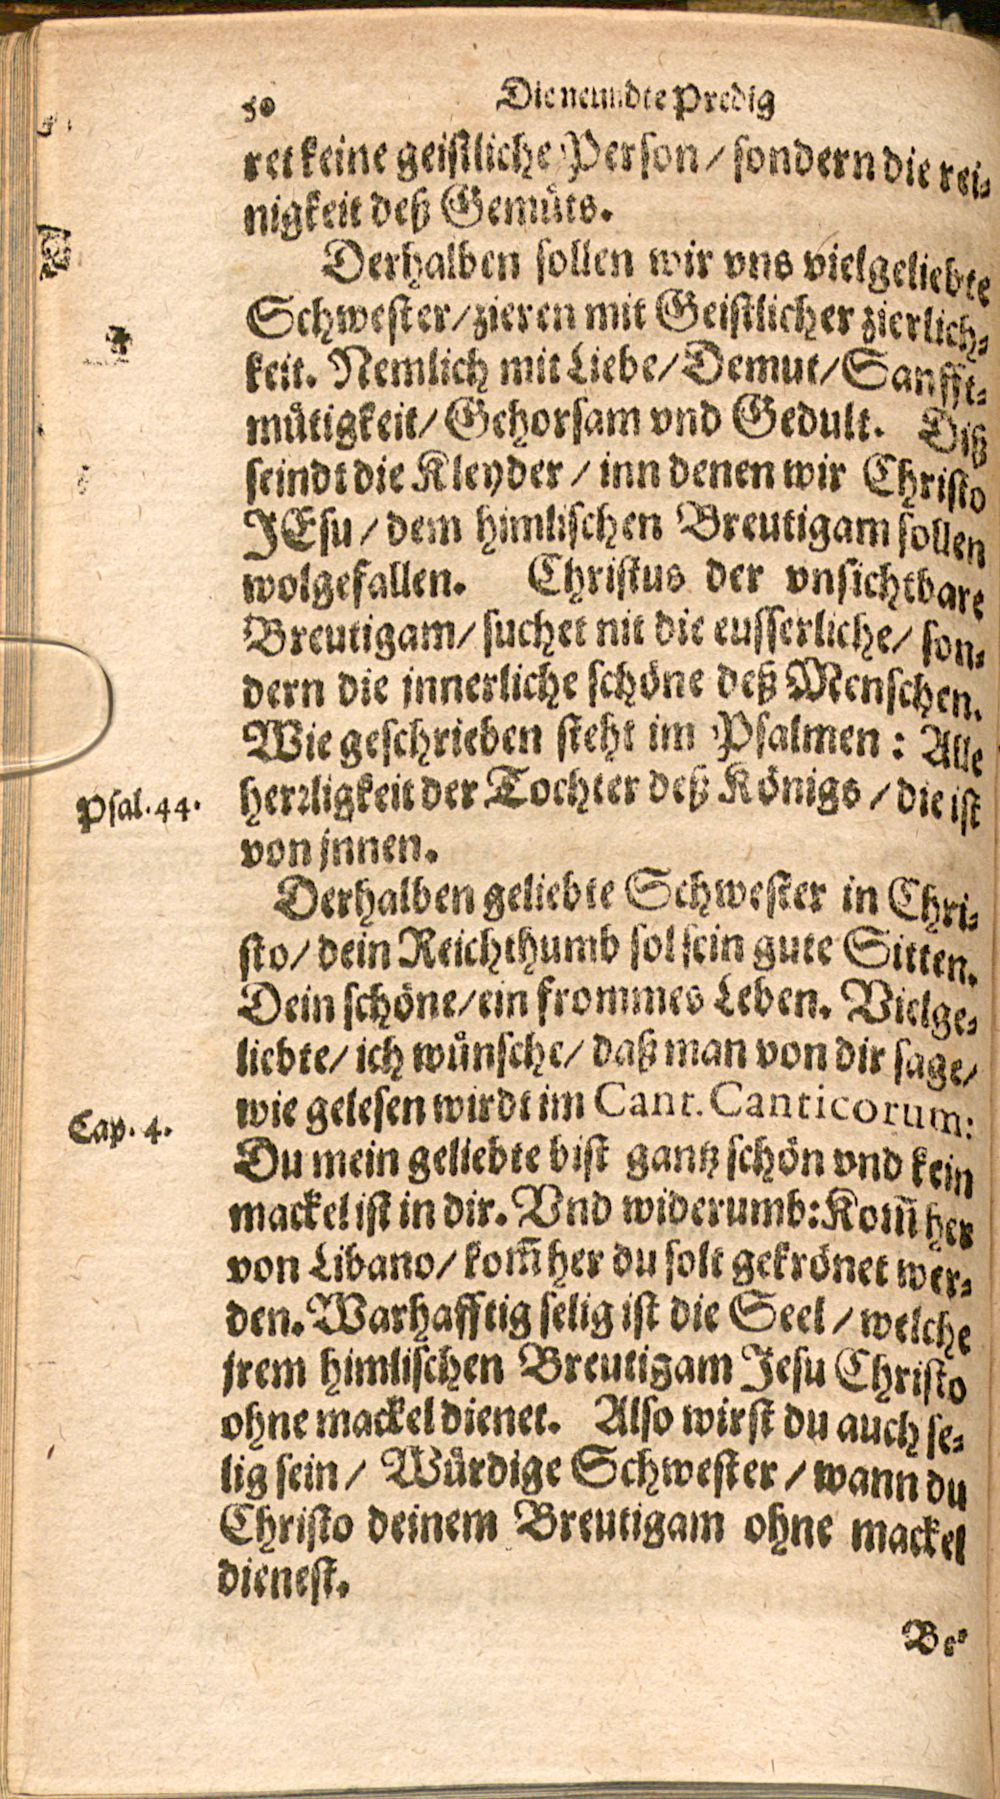 50 Die neundte Predig
ret keine geistliche Person / sondern die rei-
nigkeit deß Gemüts.
Derhalben sollen wir vns vielgeliebte
Schwester / zieren mit Geistlicher zierlich-
keit. Nemlich mit Liebe / Demut / Sanfft-
mütigkeit / Gehorsam vnd Gedult. Diß
seindt die Kleyder / inn denen wir Christo
JEsu / dem himlischen Breutigam sollen
wolgefallen. Christus der vnsichtbare
Breutigam / suchet nit die eusserliche / son-
dern die jnnerliche schöne deß Menschen.
Wie geschrieben steht im Psalmen: Alle
Psal. 44. herrligkeit der Tochter deß Königs / die ist
von jnnen.
Derhalben geliebte Schwester in Chri-
sto / dein Reichthumb sol sein gute Sitten.
Dein schöne / ein frommes Leben. Vielge-
liebte / ich wünsche / daß man von dir sage /
wie gelesen wirdt im Cant. Canticorum:
Cap. 4. Du mein geliebte bist gantz schön vnd kein
mackel ist in dir. Vnd widerumb: Kom̄ her
von Libano / kom̄ her du solt gekrönet wer-
den. Warhafftig selig ist die Seel / welche
jrem himlischen Breutigam Jesu Christo
ohne mackel dienet. Also wirst du auch se-
lig sein / Würdige Schwester / wann du
Christo deinem Breutigam ohne mackel
dienest.
Be-